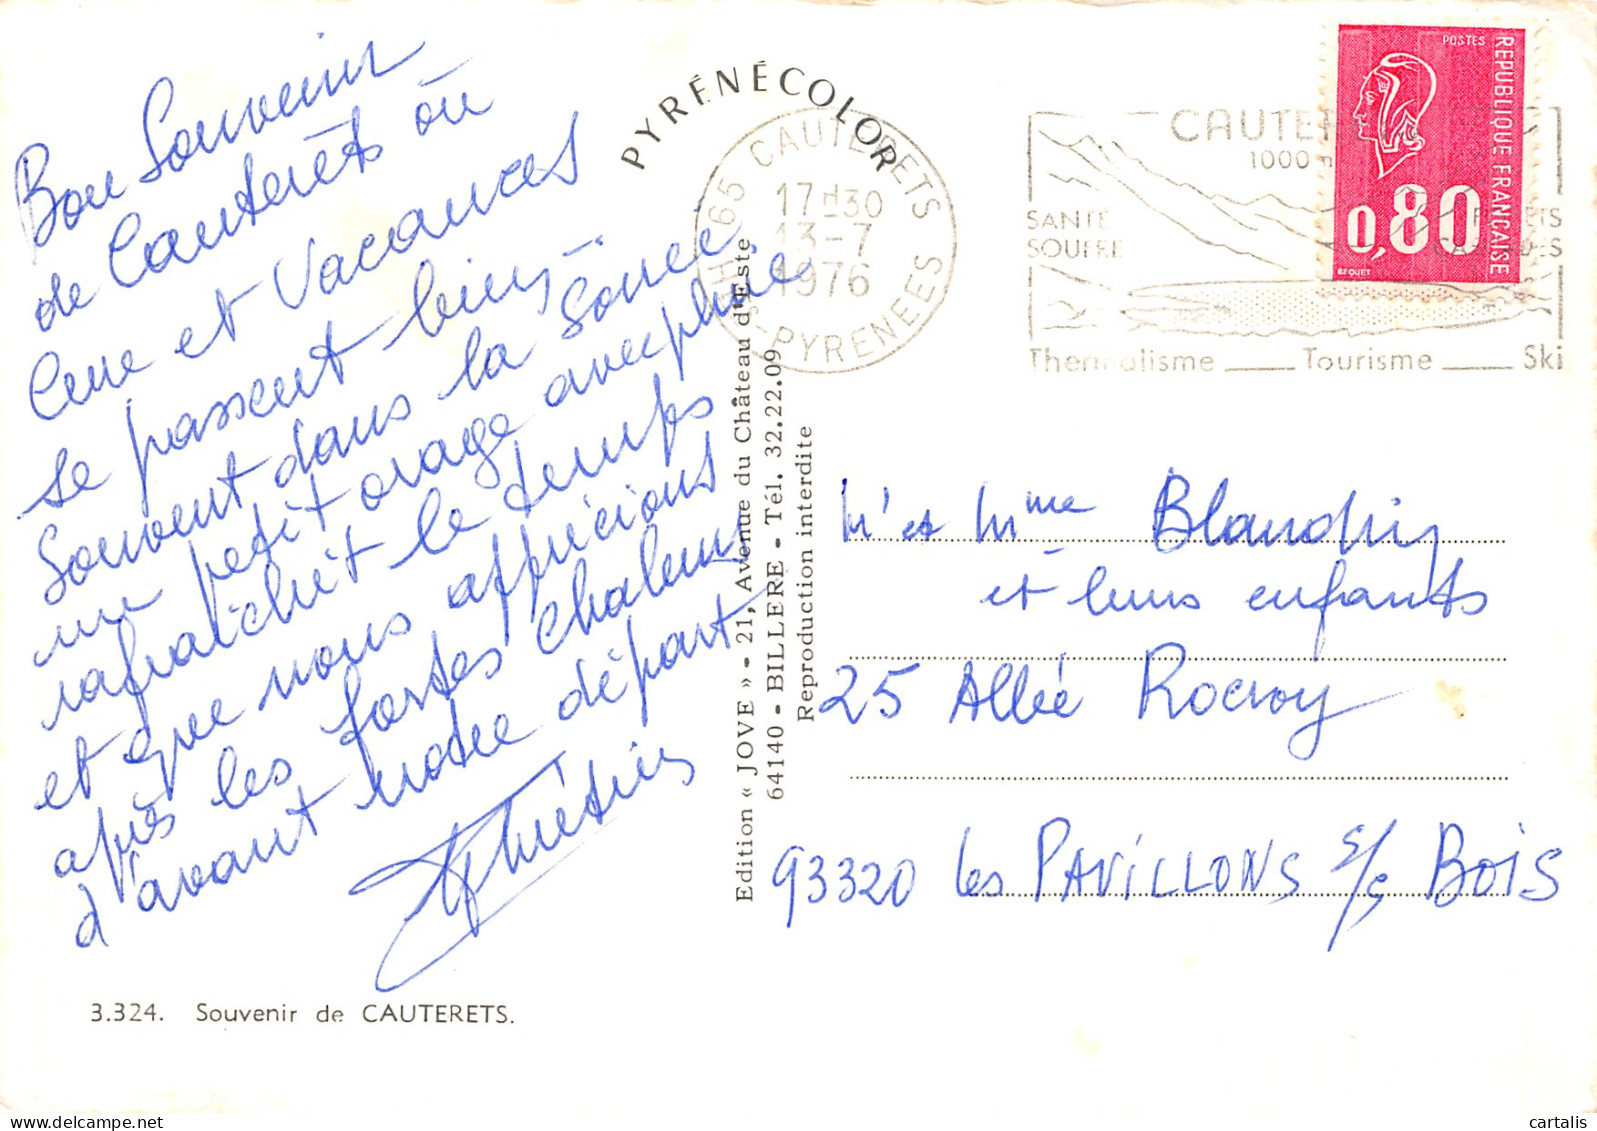 Bon Souvenir
de Cauterêts où
Cure et Vacances
se passent bien -
Souvent dans la soirée
un petit orage avec pluie
rafraîchit le temps
et que nous apprécions
après les fortes chaleurs
d'avant notre départ
3.324. Souvenir de CAUTERETS.
PYRÉNÉCOLOR
Edition « JOVE » - 21, Avenue du Château d'Este
64140 - BILLERE - Tél. 32.22.09
Reproduction interdite
65 CAUTERETS
17H30
13-7
1976
PYRENEES
CAUTE
1000
SANTE
SOUFRE
Thermalisme Tourisme Ski
POSTES
REPUBLIQUE FRANÇAISE
0,80
BEQUET
Mr et Mme Blandin
et leurs enfants
25 Allée Rocroy
93320 les PAVILLONS s/s BOIS
cartalis